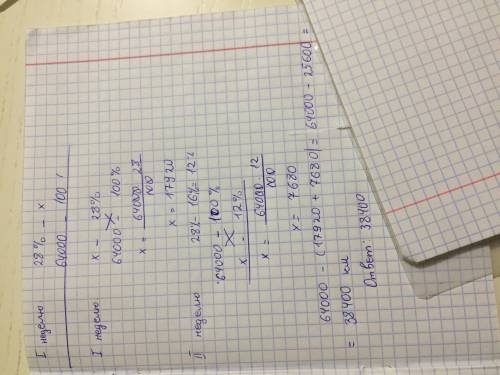 I неделю 28% - x
64000 - 100%
I неделю x - 28%
64000 - 100%
x = 64000 · 28 / 100
x = 17920
II неделю 28% - 16% = 12%
64000 - 100%
x - 12%
x = 64000 · 12 / 100
x = 7680
64000 - (17920 + 7680) = 64000 - 25600 =
= 38400 км
Ответ: 38400